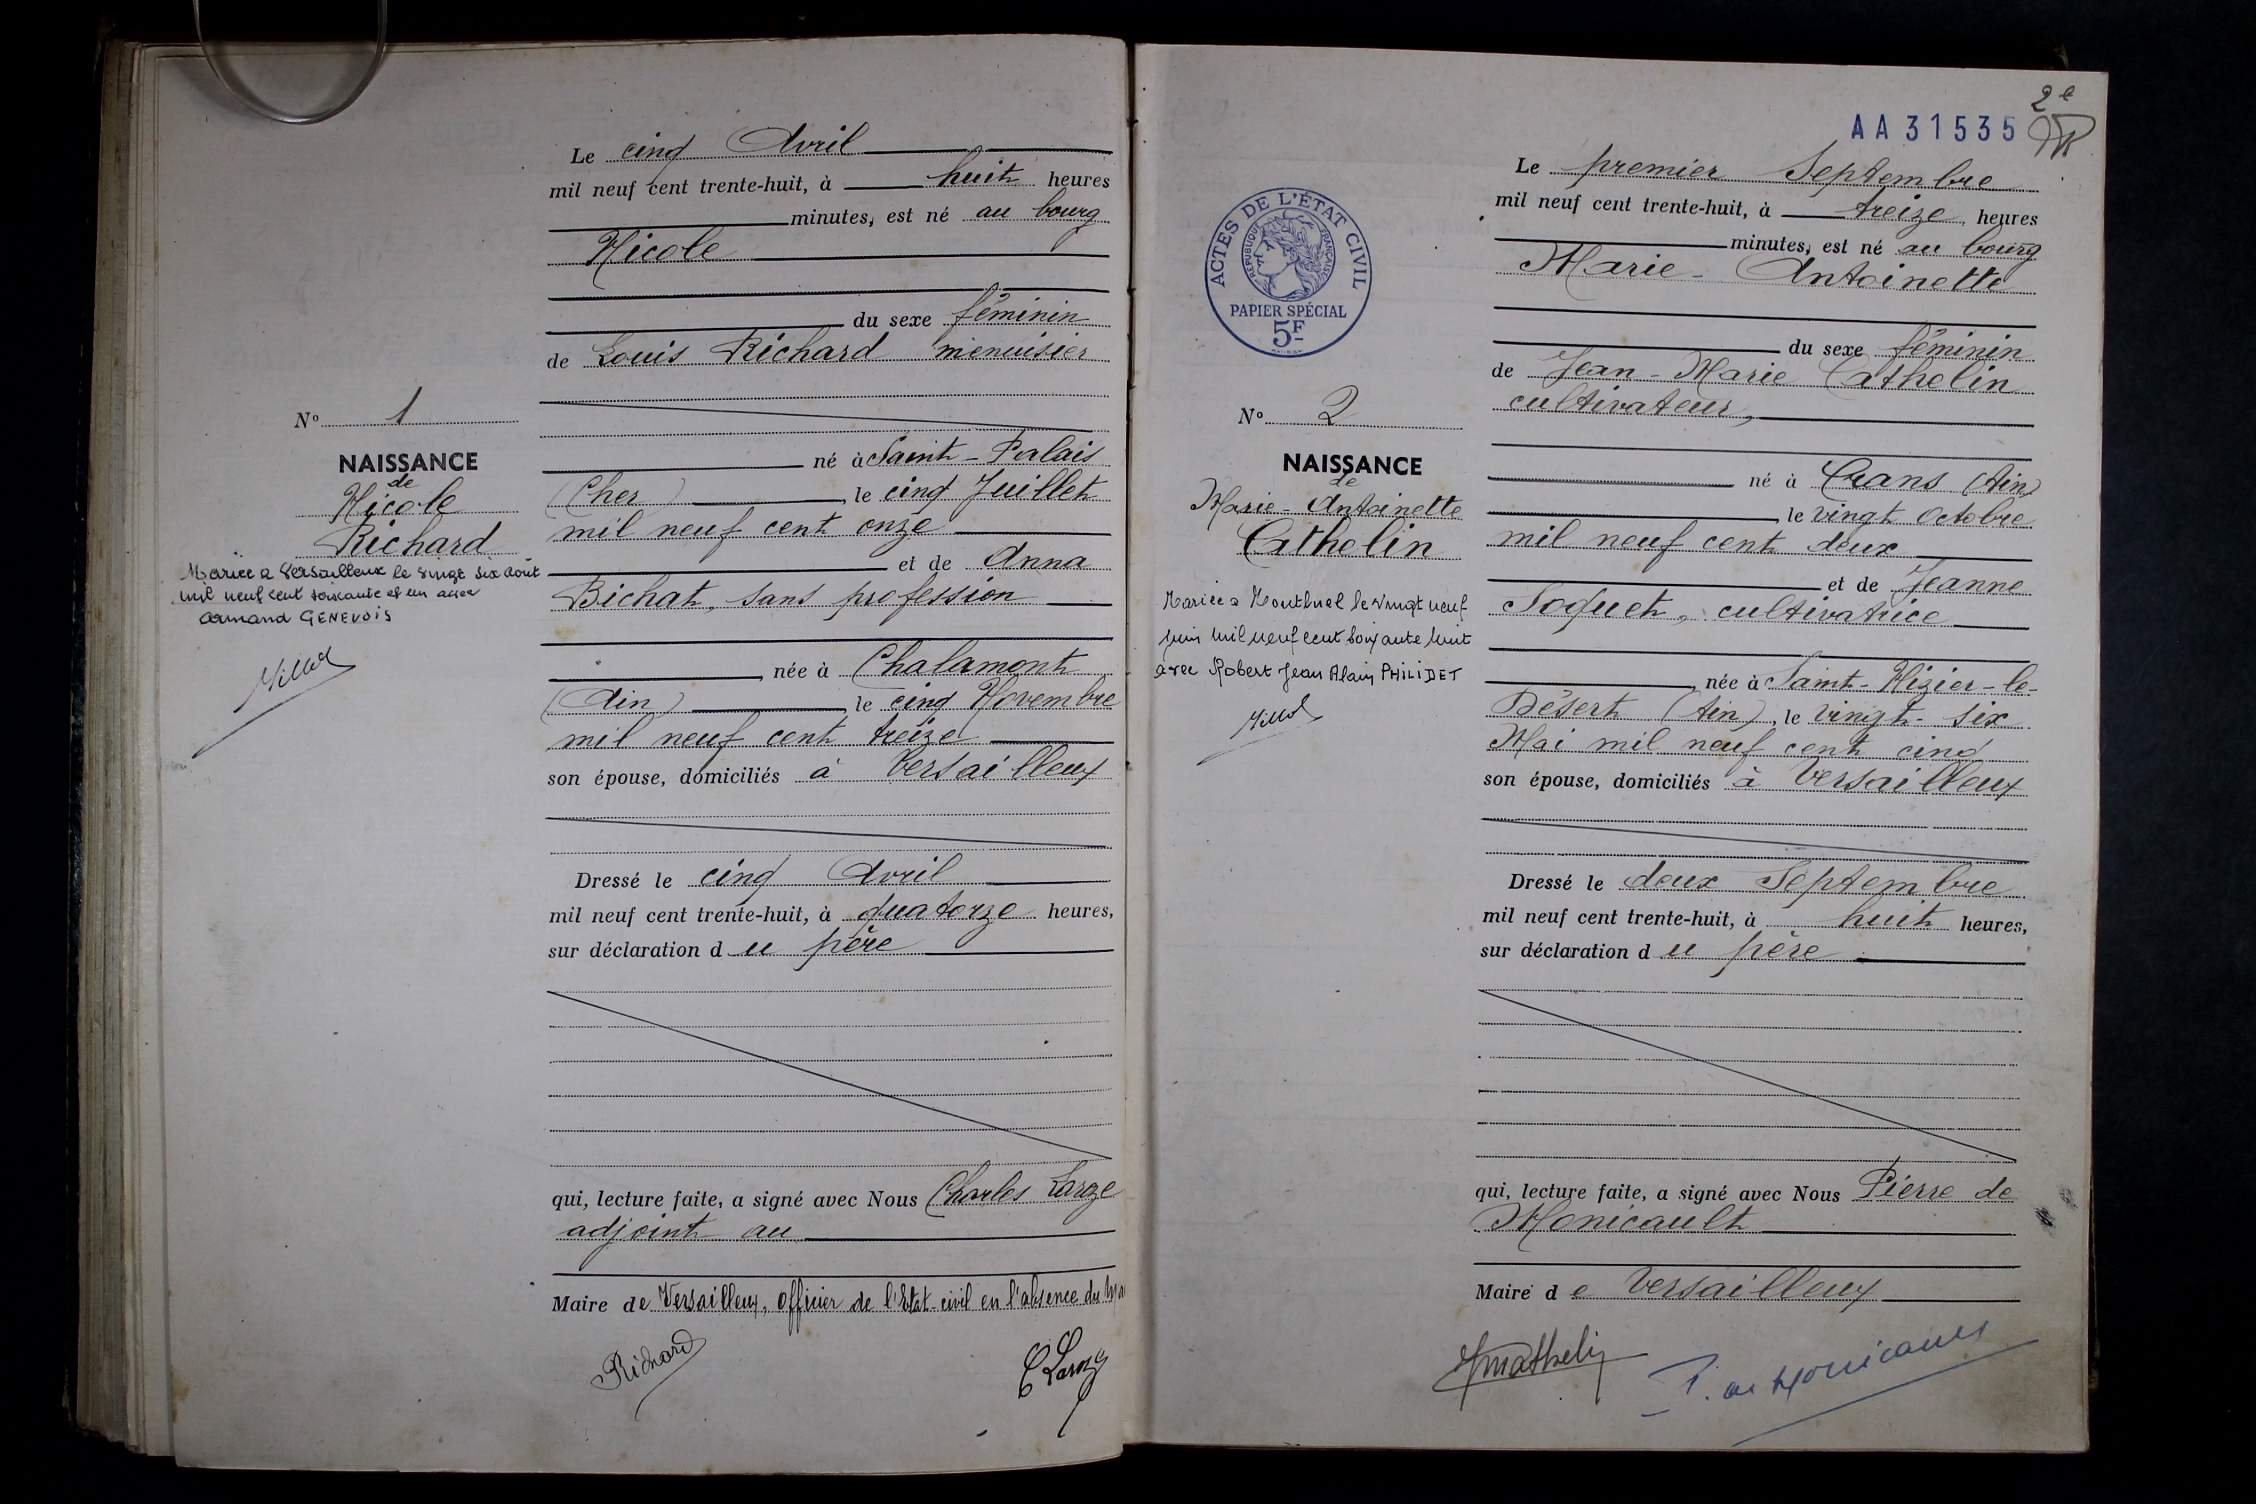 Le cinq Avril
mil neuf cent trente-huit, à huit heures
minutes, est né au bourg
Nicole
du sexe féminin
de Louis Richard menuisier
né à Saint-Palais
(Cher) , le cinq Juillet
mil neuf cent onze
et de Anna
Bichat, sans profession
née à Chalamont
(Ain) le cinq Novembre
mil neuf cent treize
son épouse, domiciliés à Versailleux
Dressé le cinq Avril
mil neuf cent trente-huit, à quatorze heures,
sur déclaration du père
qui, lecture faite, a signé avec Nous Charles Laroze
adjoint au
Maire de Versailleux, Officier de l'Etat-civil en l'absence du
Richard
C Laroze
No 1
NAISSANCE
de
Nicole
Richard
Mariée a Versailleux le vingt six août
mil neuf cent soixante et un avec
Armand GENEVOIS
AA31535
2e
Le premier Septembre
mil neuf cent trente-huit, à treize heures
minutes, est né au bourg
Marie-Antoinette
du sexe féminin
de Jean-Marie Cathelin
cultivateur,
né à Crans (Ain)
le vingt Octobre
mil neuf cent deux
et de Jeanne
Soquet, cultivatrice
née à Saint-Nizier-le-
Désert (Ain), le vingt-six
Mai mil neuf cent cinq
son épouse, domiciliés à Versailleux
Dressé le deux Septembre
mil neuf cent trente-huit, à huit heures,
sur déclaration du père
qui, lecture faite, a signé avec Nous Pierre de
Monicault
Maire de Versailleux
P. de Monicault
ACTES DE L'ÉTAT CIVIL
RÉPUBLIQUE FRANÇAISE
PAPIER SPÉCIAL
5F
No 2
NAISSANCE
de
Marie-Antoinette
Cathelin
Mariée a Montluel le vingt neuf
juin mil neuf cent soixante huit
avec Robert Jean Alain PHILIDET